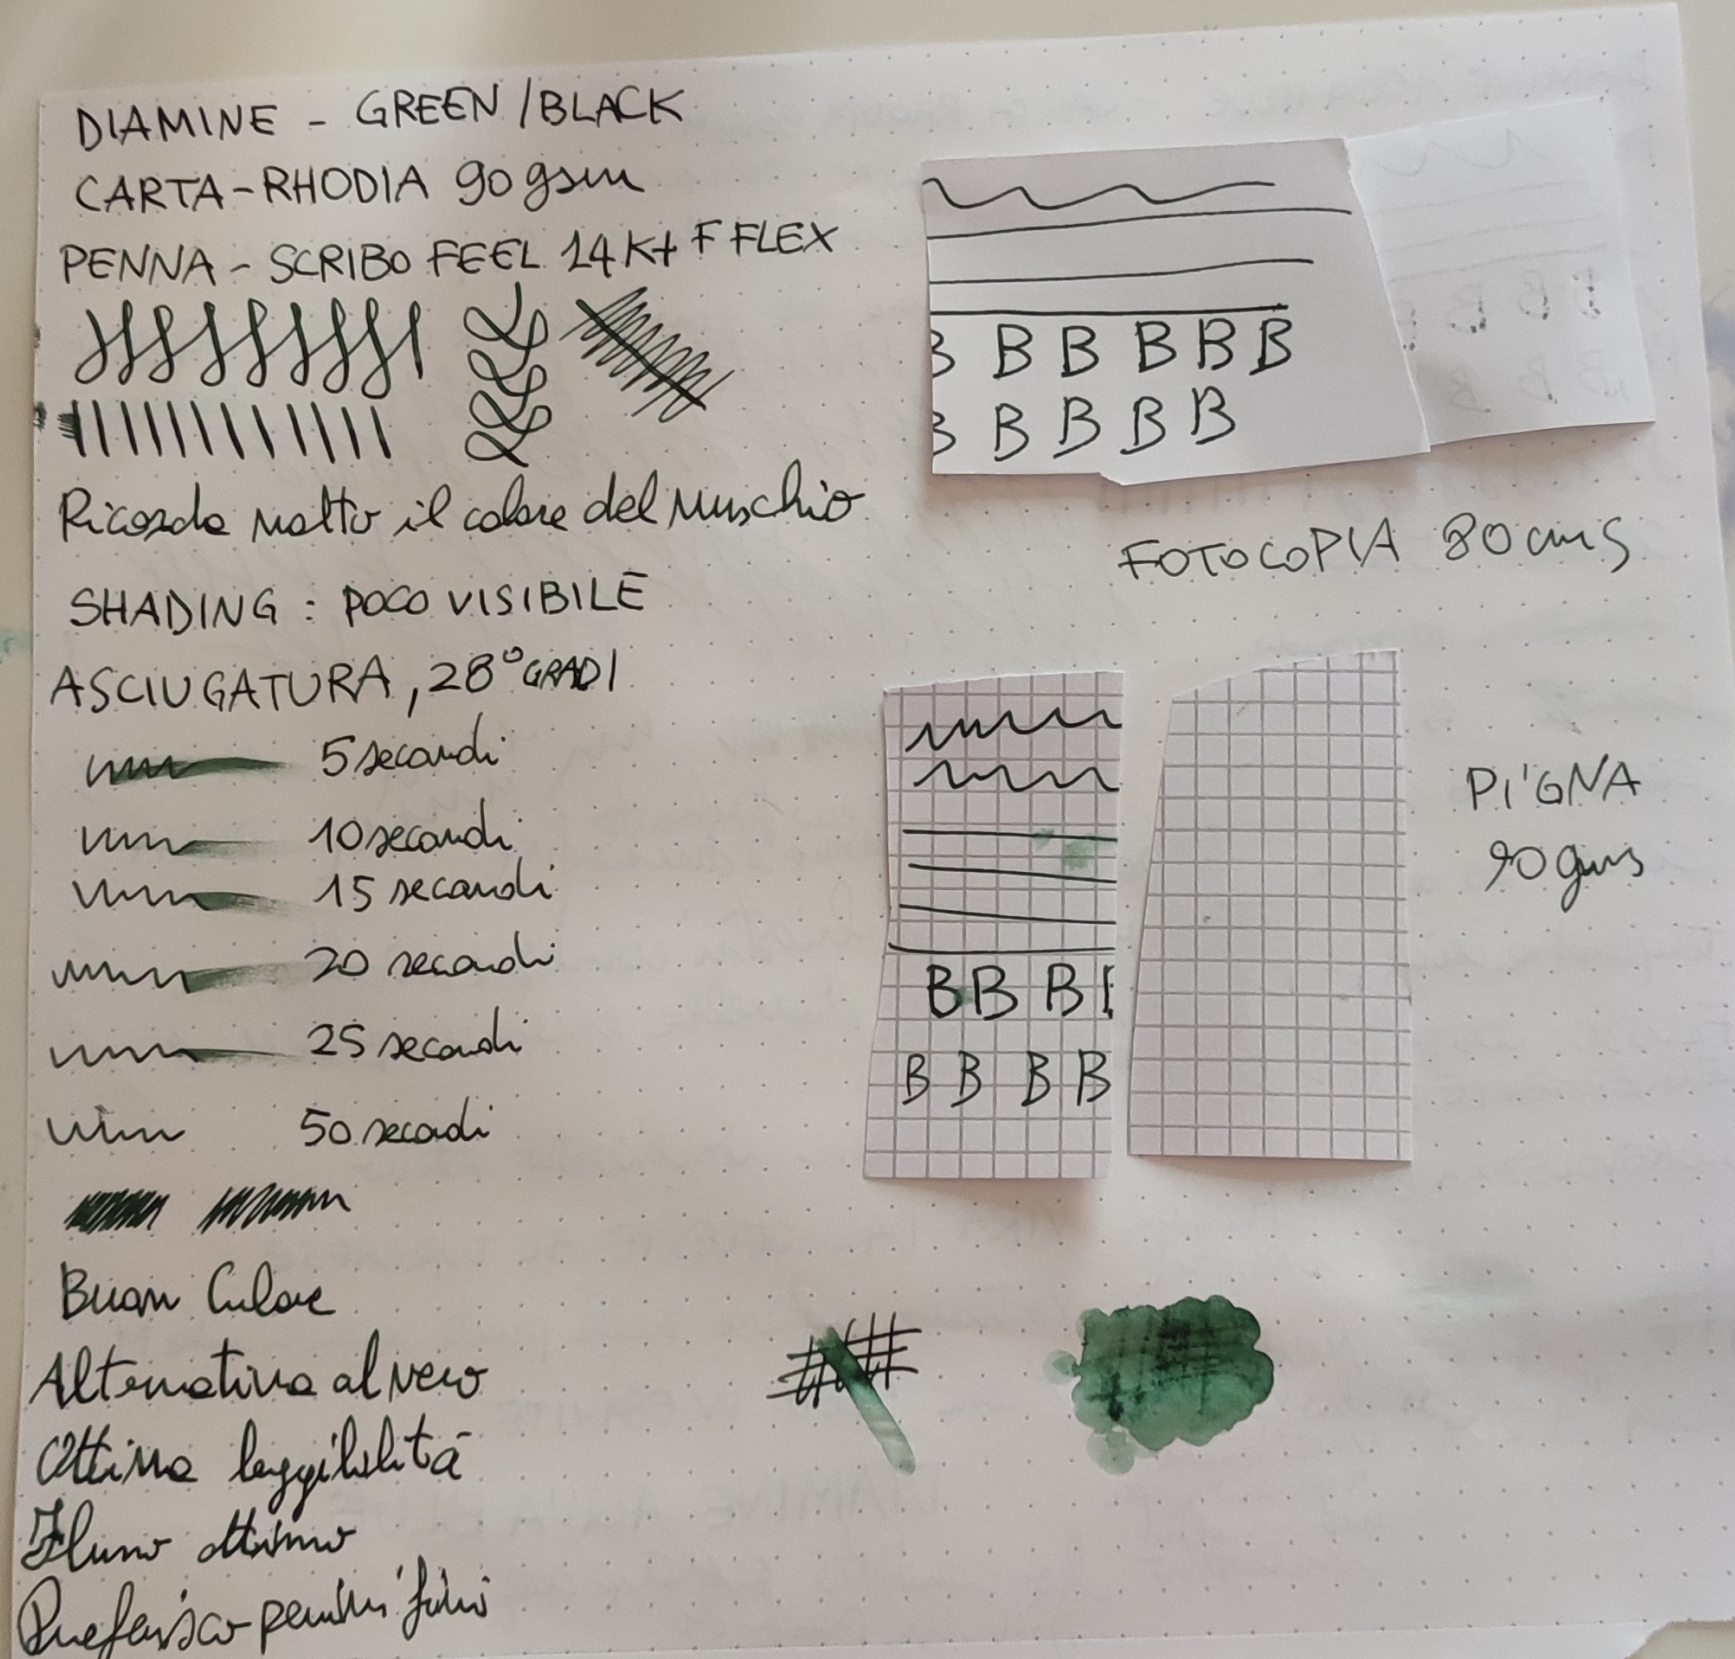 DIAMINE - GREEN/BLACK
CARTA-RHODIA 90 gsm
PENNA - SCRIBO FEEL 14 Kt F FLEX
Ricorda molto il colore del Muschio
SHADING: POCO VISIBILE
ASCIUGATURA, 28° GRADI
5 secondi
10 secondi
15 secondi
20 secondi
25 secondi
50 secodi
Buon Colore
Alternativa al nero
Ottima leggibilità
Flusso ottimo
Preferisco pennini fini
B B B B B B
B B B B B
FOTOCOPIA 80 gms
B B B
B B B B
PIGNA
90 gms